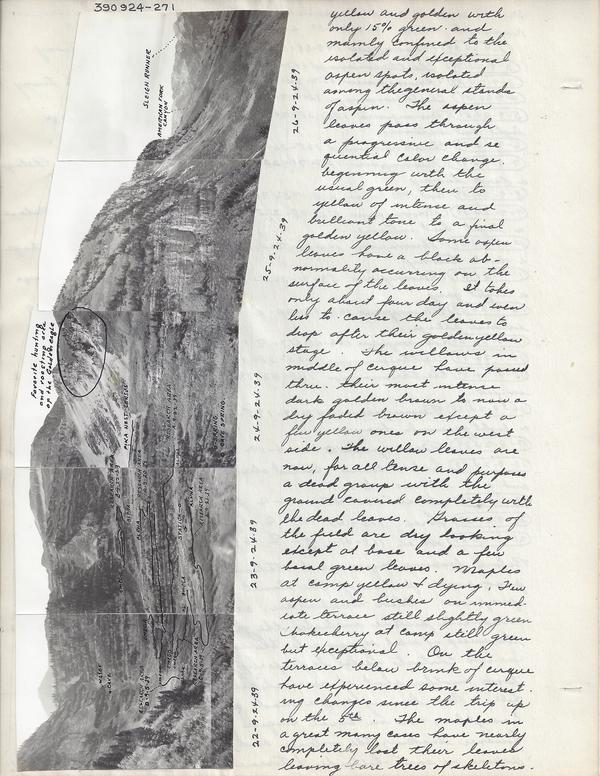 390924-271
SLEIGH RUNNER
AMERICAN FORK
CANYON
Favorite hunting
and roosting area
of the Golden eagle
PIKA NEST
26-9-24-39
25-9-24-39
24-9-24-39
23-9-24-39
22-9-24-39
yellow and golden with
only 15% green and
mainly confined to the
isolated and exceptional
aspen spots, isolated
among the general stands
of aspen. The aspen
leaves pass through
a progressive and se
quential color change.
beginning with the
usual green, then to
yellow of intense and
brilliant tone to a final
golden yellow. Some aspen
leaves have a black ab-
normality occurring on the
surface of the leaves. It takes
only about four day and even
less to cause the leaves to
drop after their golden yellow
stage. The willows in
middle of cirque have passed
thru. their most intense
dark golden brown to now a
dry faded brown except a
few yellow ones on the west
side. The willow leaves are
now, for all tense and purposes
a dead group with the
ground covered completely with
the dead leaves. Grasses of
the field are dry looking
except at base and a few
basal green leaves. Maples
at camp yellow & dying. Few
aspen and bushes on immed-
iate terrace still slightly green
Chokecherry at camp still green
but exceptional. On the
terraces below brink of cirque
have experienced some interest.
ing changes since the trip up
on the 5th. The maples in
a great many cases have nearly
completely lost their leaves
leaving bare trees of skeletons.